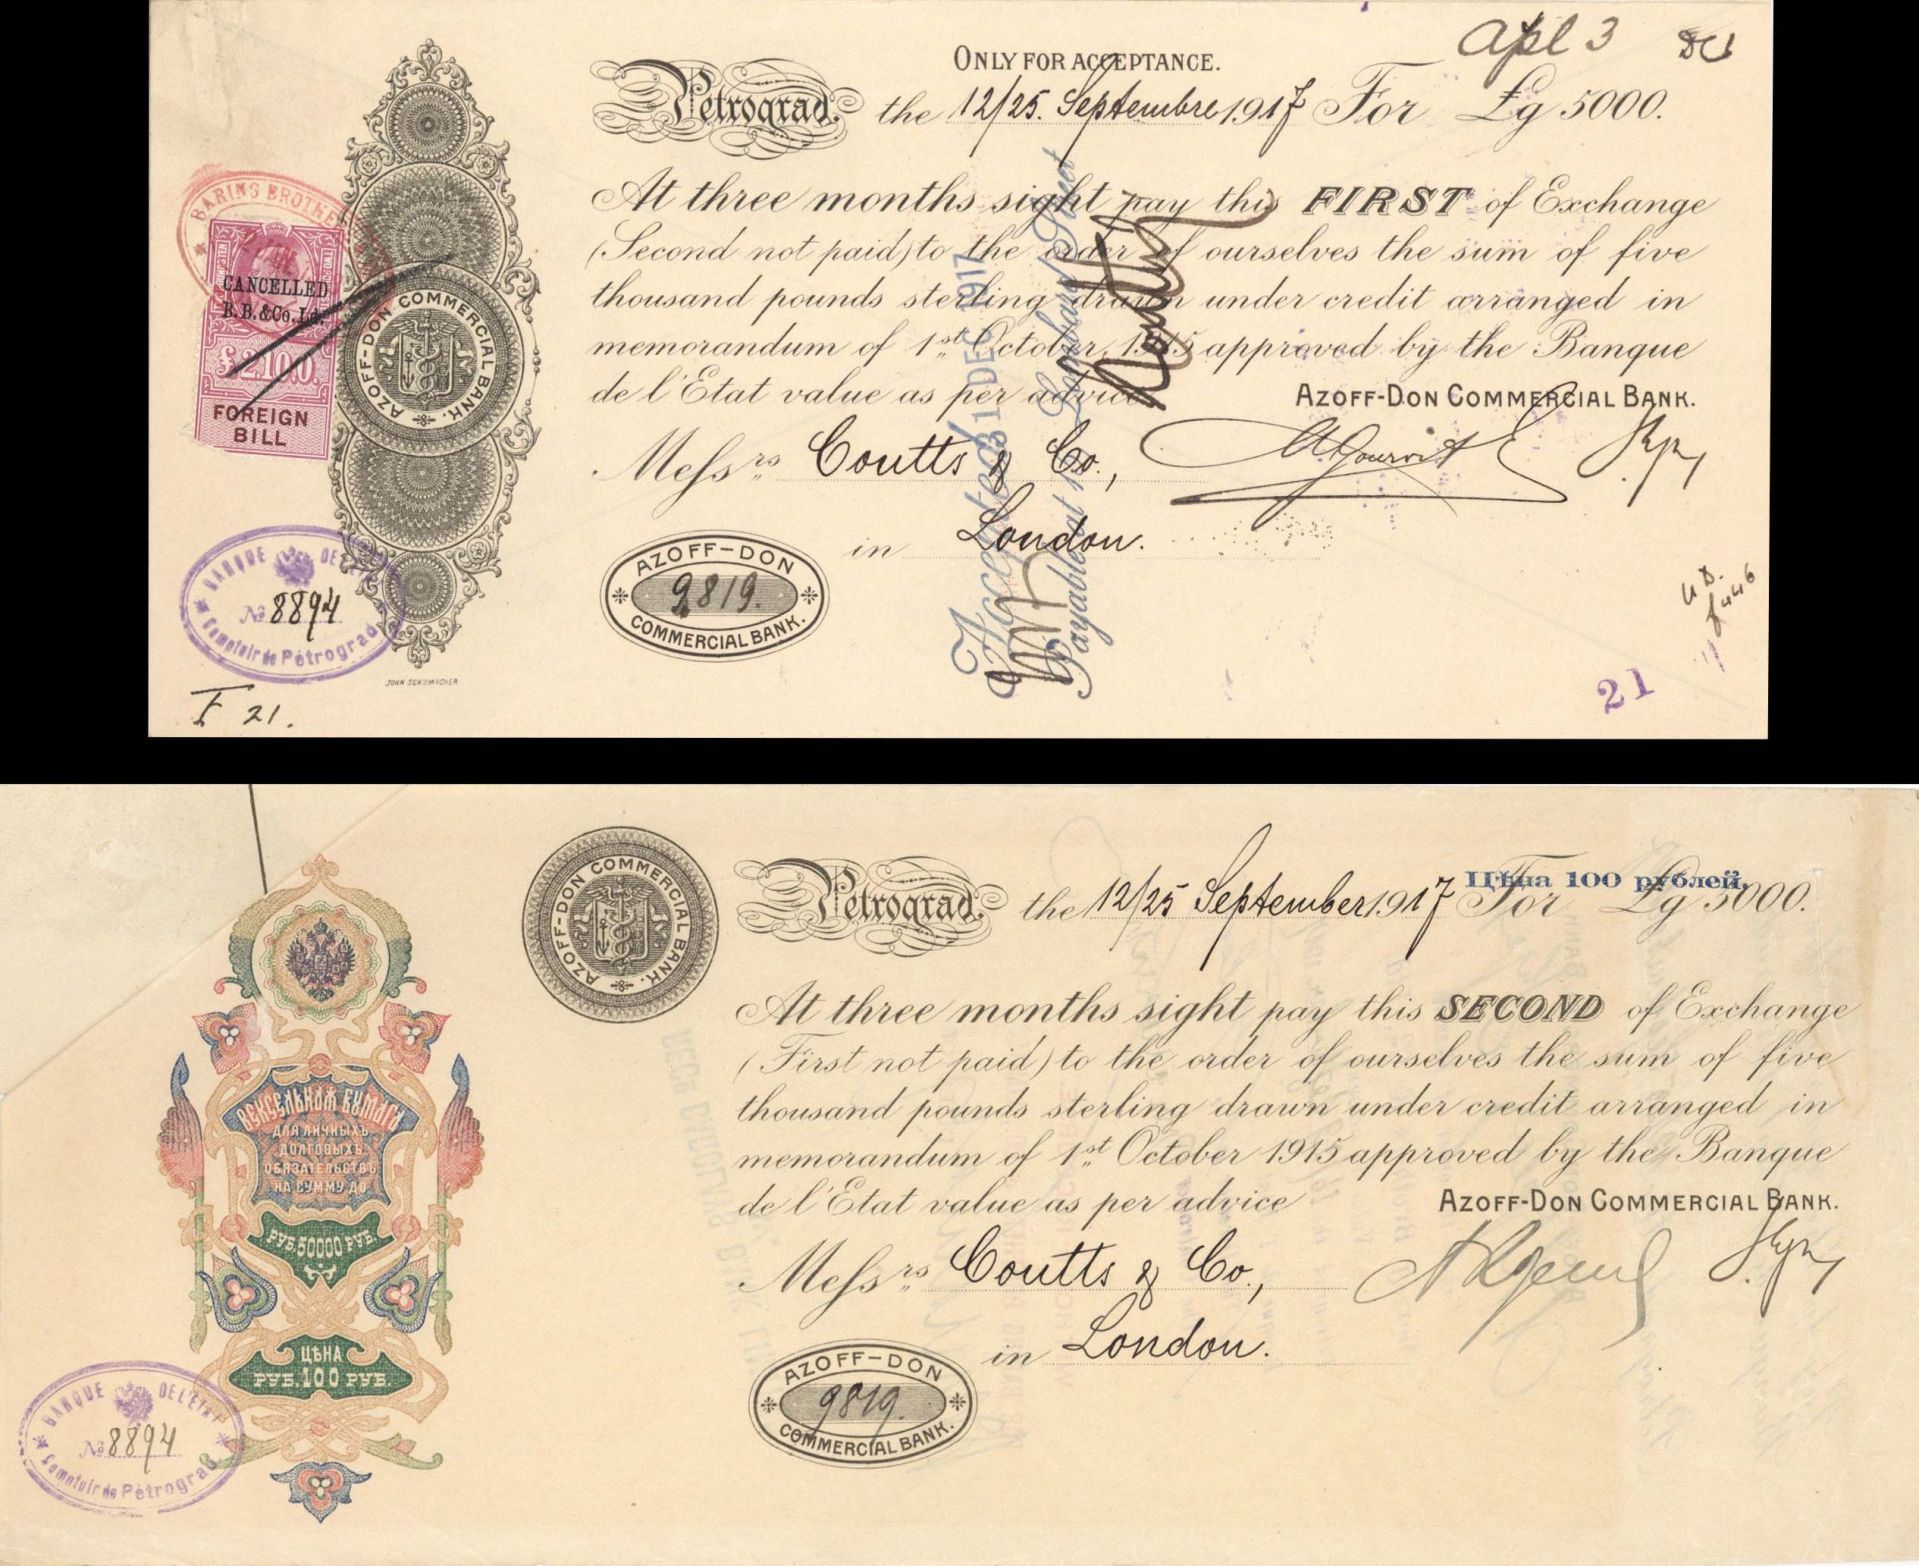 Apl 3
ONLY FOR ACCEPTANCE.
Petrograd. the 12/25. Septembre 1917 For £g 5000.
At three months sight pay this FIRST of Exchange
(Second not paid) to the order of ourselves the sum of five
thousand pounds sterling drawn under credit arranged in
memorandum of 1st October, 1915 approved by the Banque
de l'Etat value as per advice
AZOFF-DON COMMERCIAL BANK.
Messrs Coutts & Co.,
in London.
BARING BROTHE
CANCELLED
B.B.&Co.Ld.
£2.10.0.
FOREIGN
BILL
AZOFF-DON COMMERCIAL BANK.
Accepted 31 DEC 1917
Payable at 15 Lombard Street
AZOFF-DON
9819.
COMMERCIAL BANK.
BANQUE DE L'ETAT
№ 8894
Comptoir de Pétrograd
JOHN SCHUMACHER
F 21.
21
AZOFF-DON COMMERCIAL BANK.
Petrograd. the 12/25 September 1917 For £g 5000.
Цѣна 100 рублей.
At three months sight pay this SECOND of Exchange
(First not paid) to the order of ourselves the sum of five
thousand pounds sterling drawn under credit arranged in
memorandum of 1st October 1915 approved by the Banque
de l'Etat value as per advice
AZOFF-DON COMMERCIAL BANK.
Messrs Coutts & Co.,
in London.
ВЕКСЕЛЬНАЯ БУМАГА
ДЛЯ ЛИЧНЫХЪ
ДОЛГОВЫХЪ
ОБЯЗАТЕЛЬСТВЪ
НА СУММУ ДО
РУБ. 50000 РУБ.
ЦѢНА
РУБ. 100 РУБ.
AZOFF-DON
9819.
COMMERCIAL BANK.
BANQUE DE L'ETAT
№ 8894
Comptoir de Pétrograd